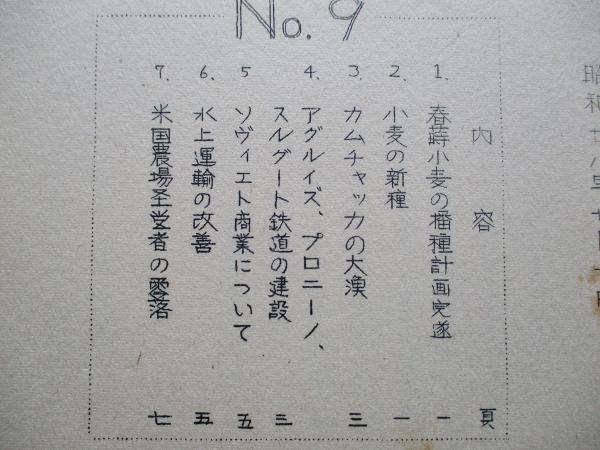 No. 9
内容 頁
1. 春蒔小麦の播種計画完遂 一
2. 小麦の新種 一
3. カムチャッカの大漁 三
4. アグルイズ、プロニーノ、
スルグート鉄道の建設 三
5 ソヴィエト商業について 五
6. 水上運輸の改善 五
7. 米国農場圣営者の零落 七